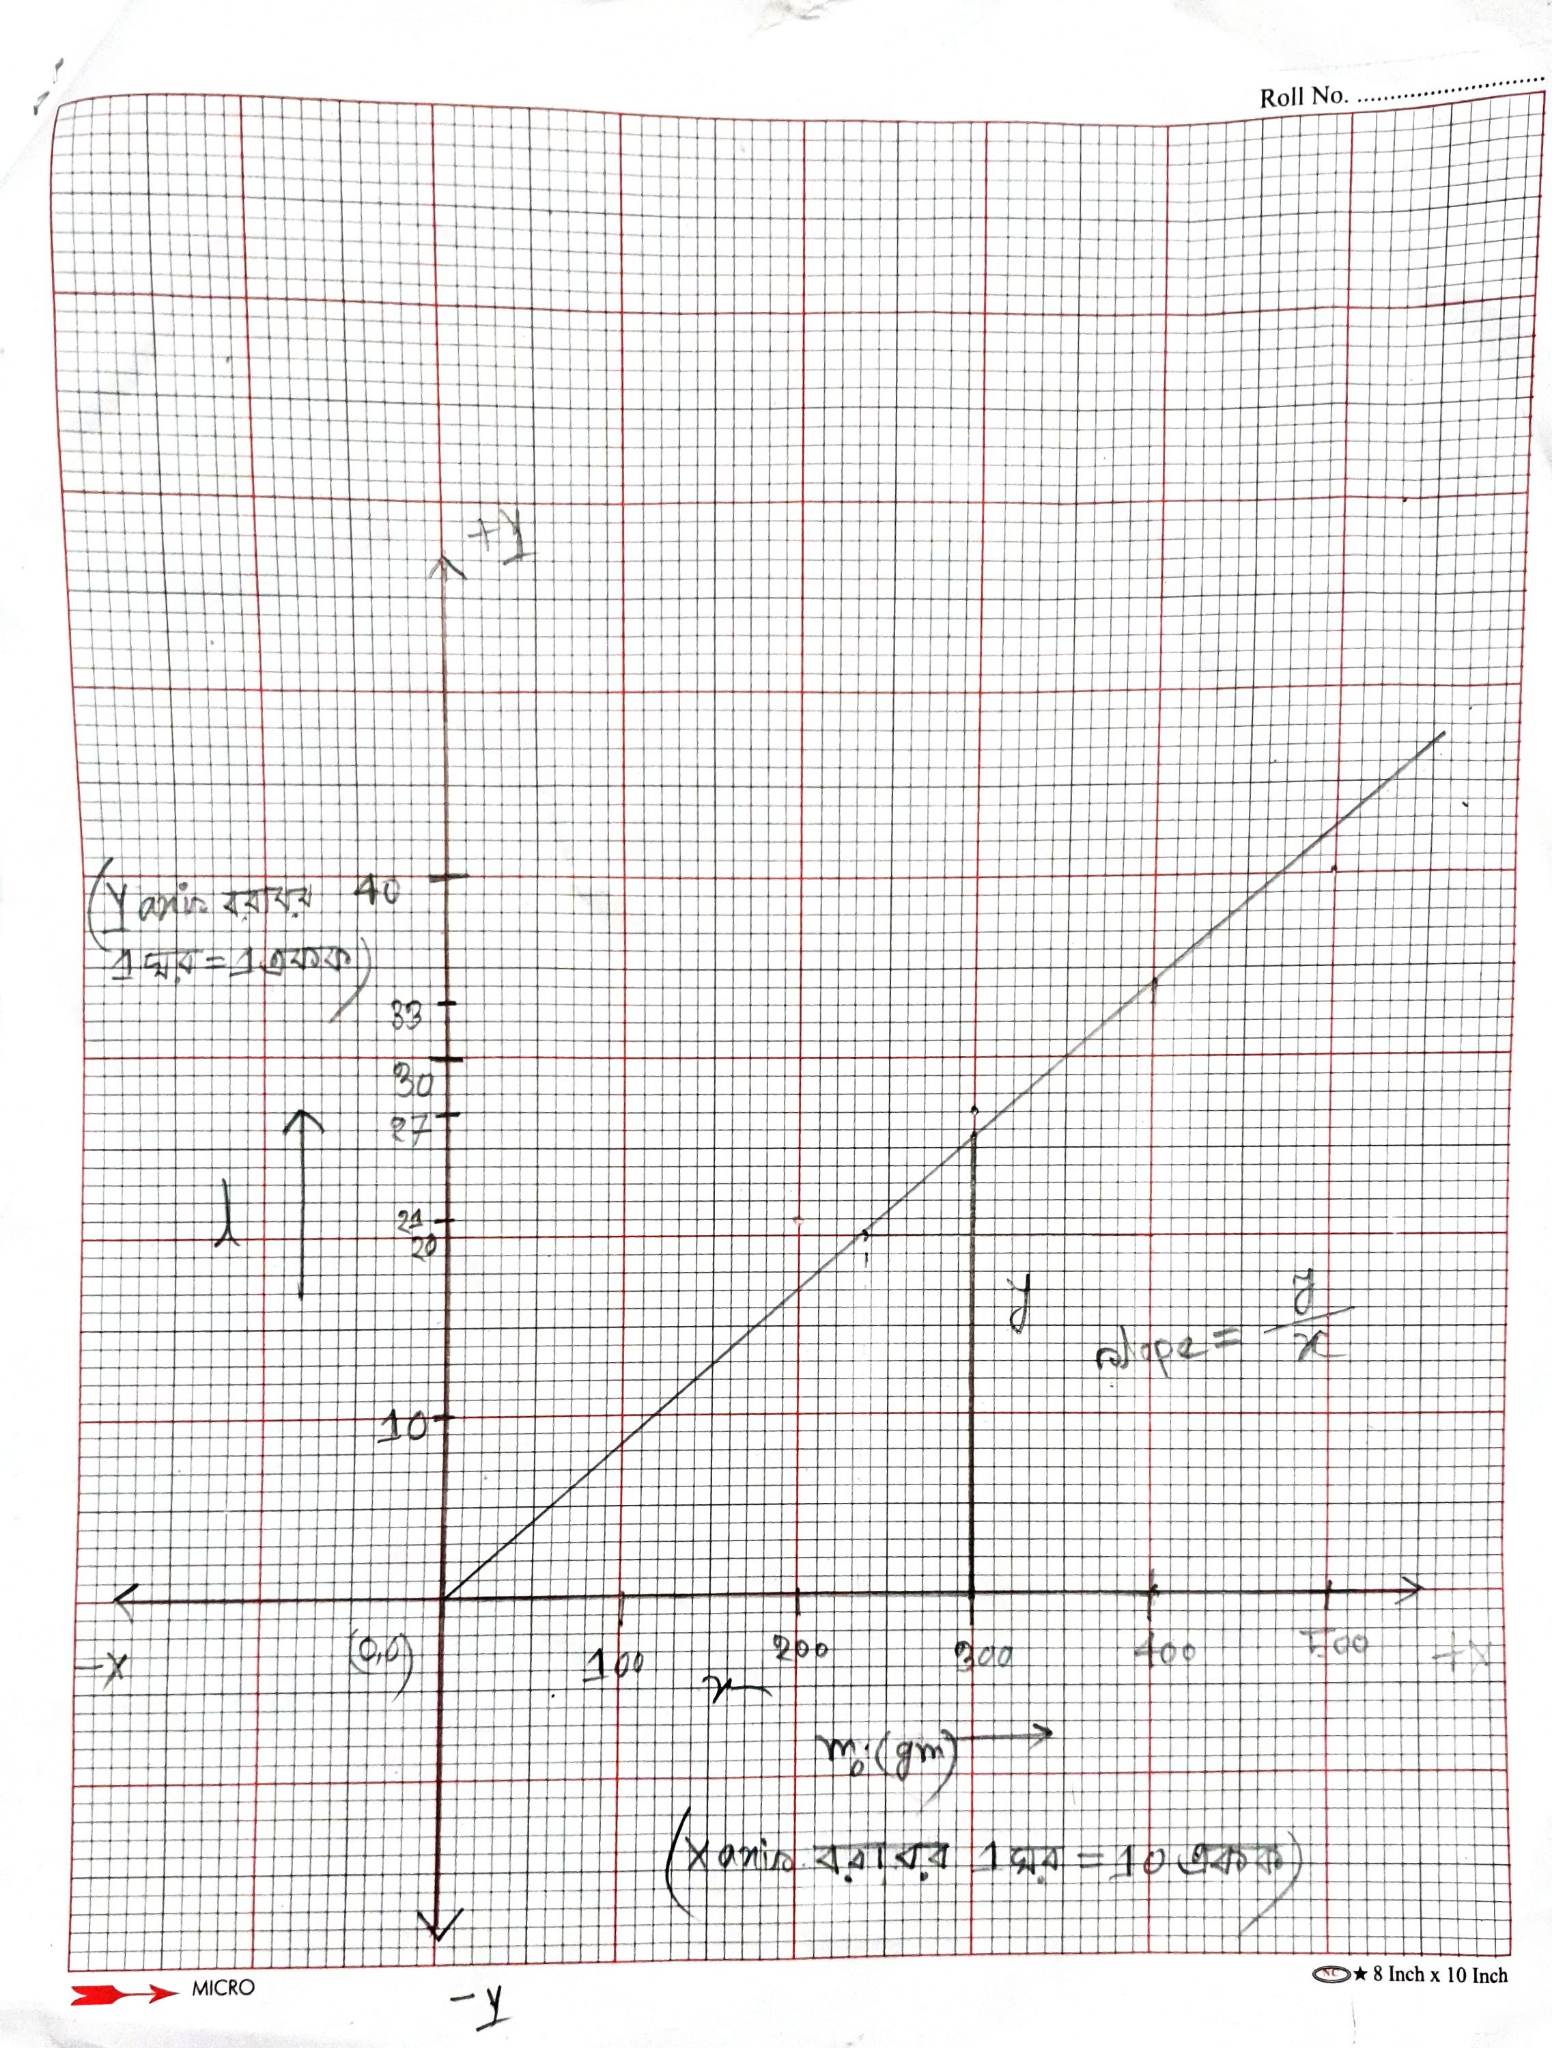 Roll No. ....................
+y
40
(Y axis বরাবর
1 ঘর = 1 একক)
33
30
27
l
21
20
y
slope = y/x
10
-X
(0,0)
100
200
300
400
500
+X
x
m₀ (gm)
(X axis বরাবর 1 ঘর = 10 একক)
MICRO
NC ★ 8 Inch x 10 Inch
-y